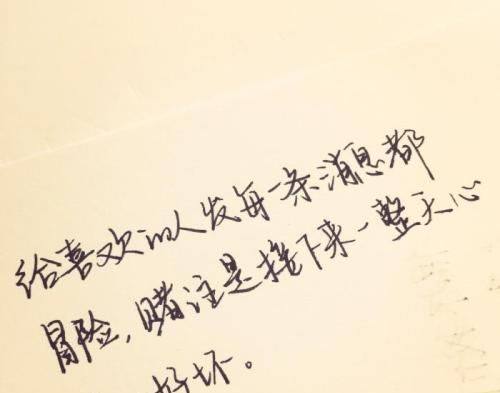 给喜欢的人发每一条消息都
冒险,赌注是接下来一整天心
好坏。